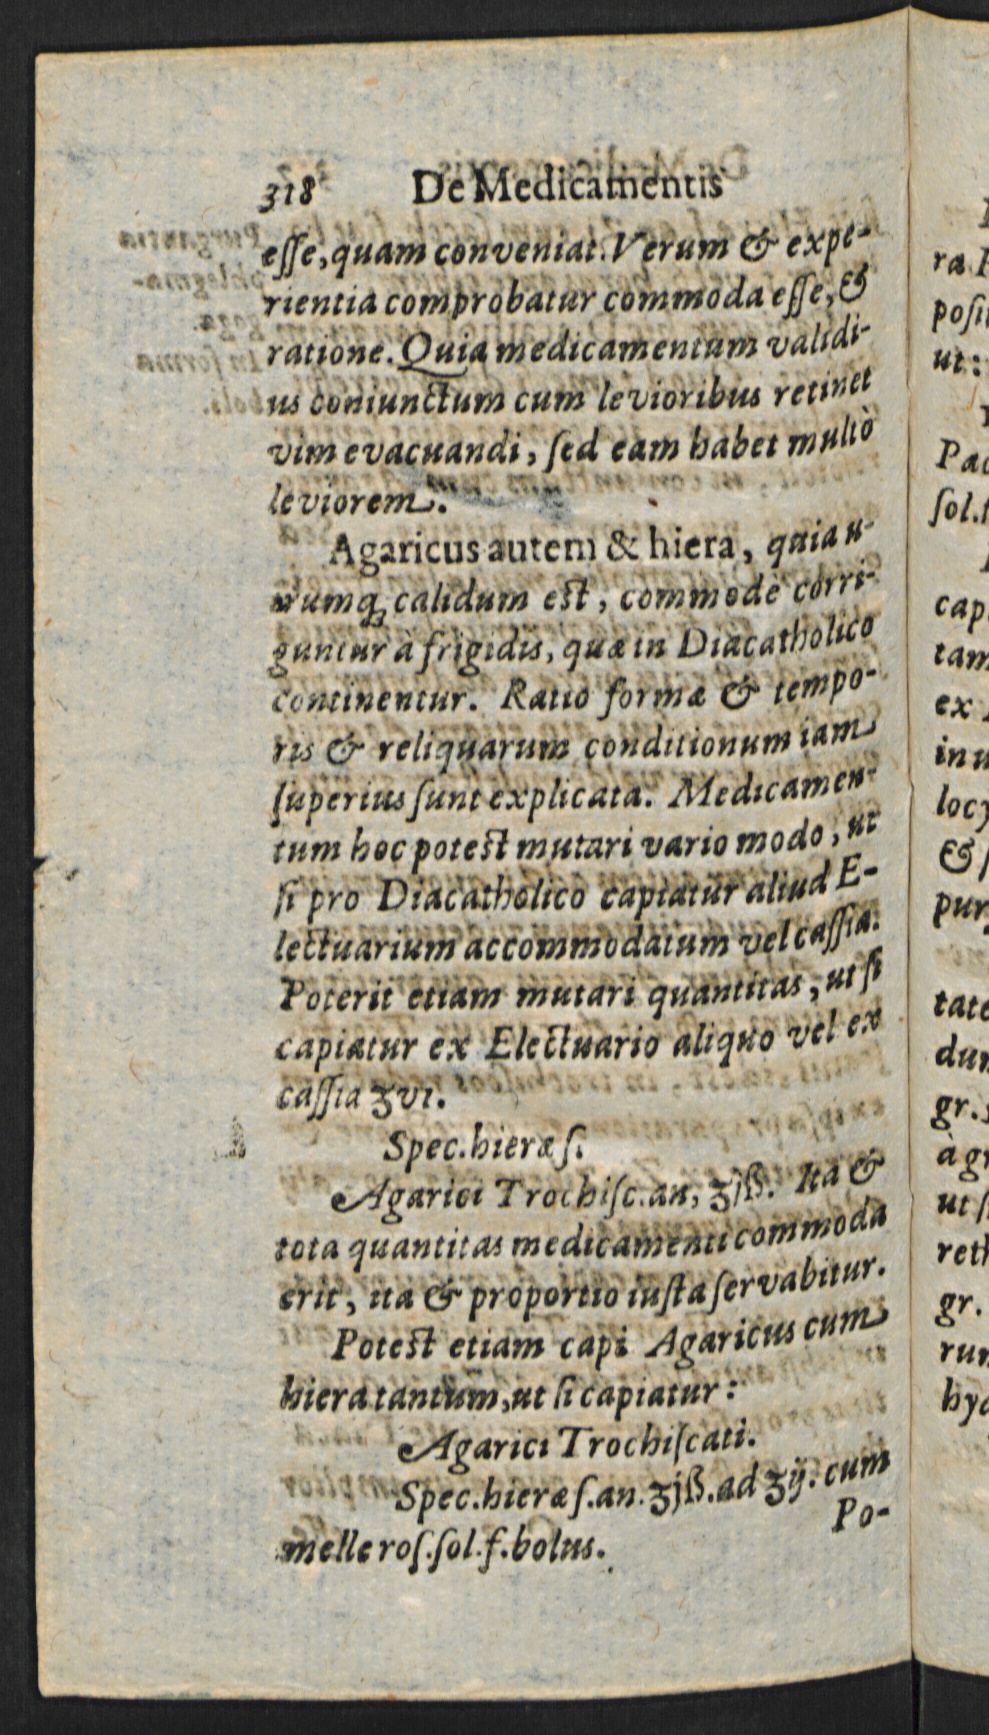 318 De Medicamentis
esse, quam conveniat. Verum & expe-
rientia comprobatur commoda esse, &
ratione. Quia medicamentum validi-
us coniunctum cum levioribus retinet
vim evacuandi, sed eam habet multò
leviorem.
Agaricus autem & hiera, quia u-
trumq; calidum est, commodè corri-
guntur à frigidis, quæ in Diacatholico
continentur. Ratio formæ & tempo-
ris & reliquarum conditionum iam
superius sunt explicata. Medicamen-
tum hoc potest mutari vario modo, ut
si pro Diacatholico capiatur aliud E-
lectuarium accommodatum vel cassia.
Poterit etiam mutari quantitas, ut si
capiatur ex Electuario aliquo vel ex
cassia ʒvi.
Spec. hieræ s.
Agarici Trochisc. an, ʒjß. Ita &
tota quantitas medicamenti commoda
erit, ita & proportio iusta servabitur.
Potest etiam capi Agaricus cum
hiera tantùm, ut si capiatur:
Agarici Trochiscati.
Spec. hieræ s. an. ʒjß. ad ʒij. cum
melle ros. sol. f. bolus.
Po-
ra
posi
ut:
Pac
sol.
cap
tam
ex
in u
locy
& s
pur
tate
dun
gr.
à gr
ut s
reth
gr.
run
hyd